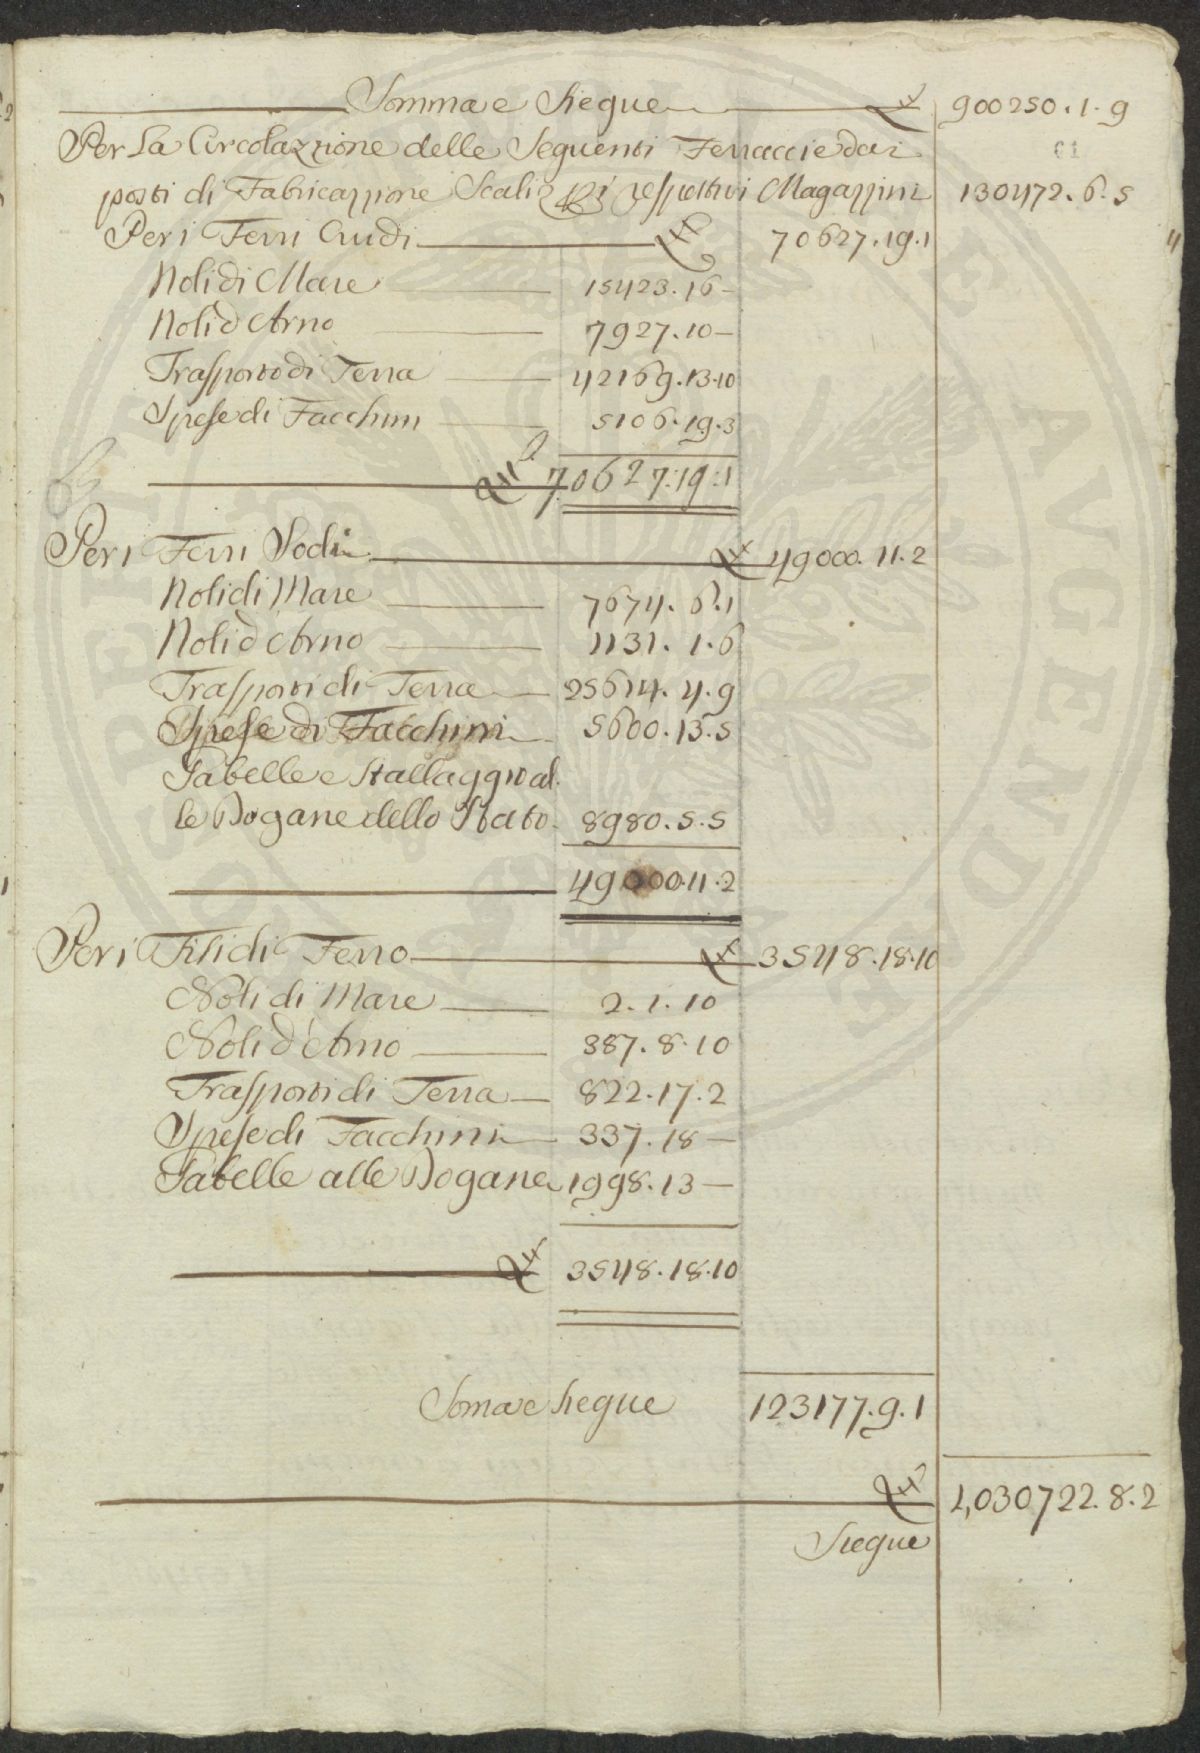 Somma e Siegue 900250.1.9
61
Per La Circolazzione delle Seguenti Ferraccie dai
posti di Fabricazzione Scali respettivi Magazzini 130472.6.5
Per i Ferri Crudi 70627.19.1
Noli di Mare 15423.16—
Noli d'Arno 7927.10—
Trasporto di Terra 42169.13.10
Spese di Facchini 5106.19.3
70627.19.1
Per i Ferri Sodi 49000.11.2
Noli di Mare 7674.6.1
Noli d'Arno 1131.1.6
Trasporti di Terra 25614.4.9
Spese di Facchini 5600.13.5
Gabelle e Stallaggio al
le Dogane dello Stato 8980.5.5
49000.11.2
Per i Fili di Ferro 3548.18.10
Noli di Mare 2.1.10
Noli d'Arno 387.8.10
Trasporti di Terra 822.17.2
Spese di Facchini 337.18—
Gabelle alle Dogane 1998.13—
3548.18.10
Soma e Siegue 123177.9.1
1,030722.8.2
Siegue